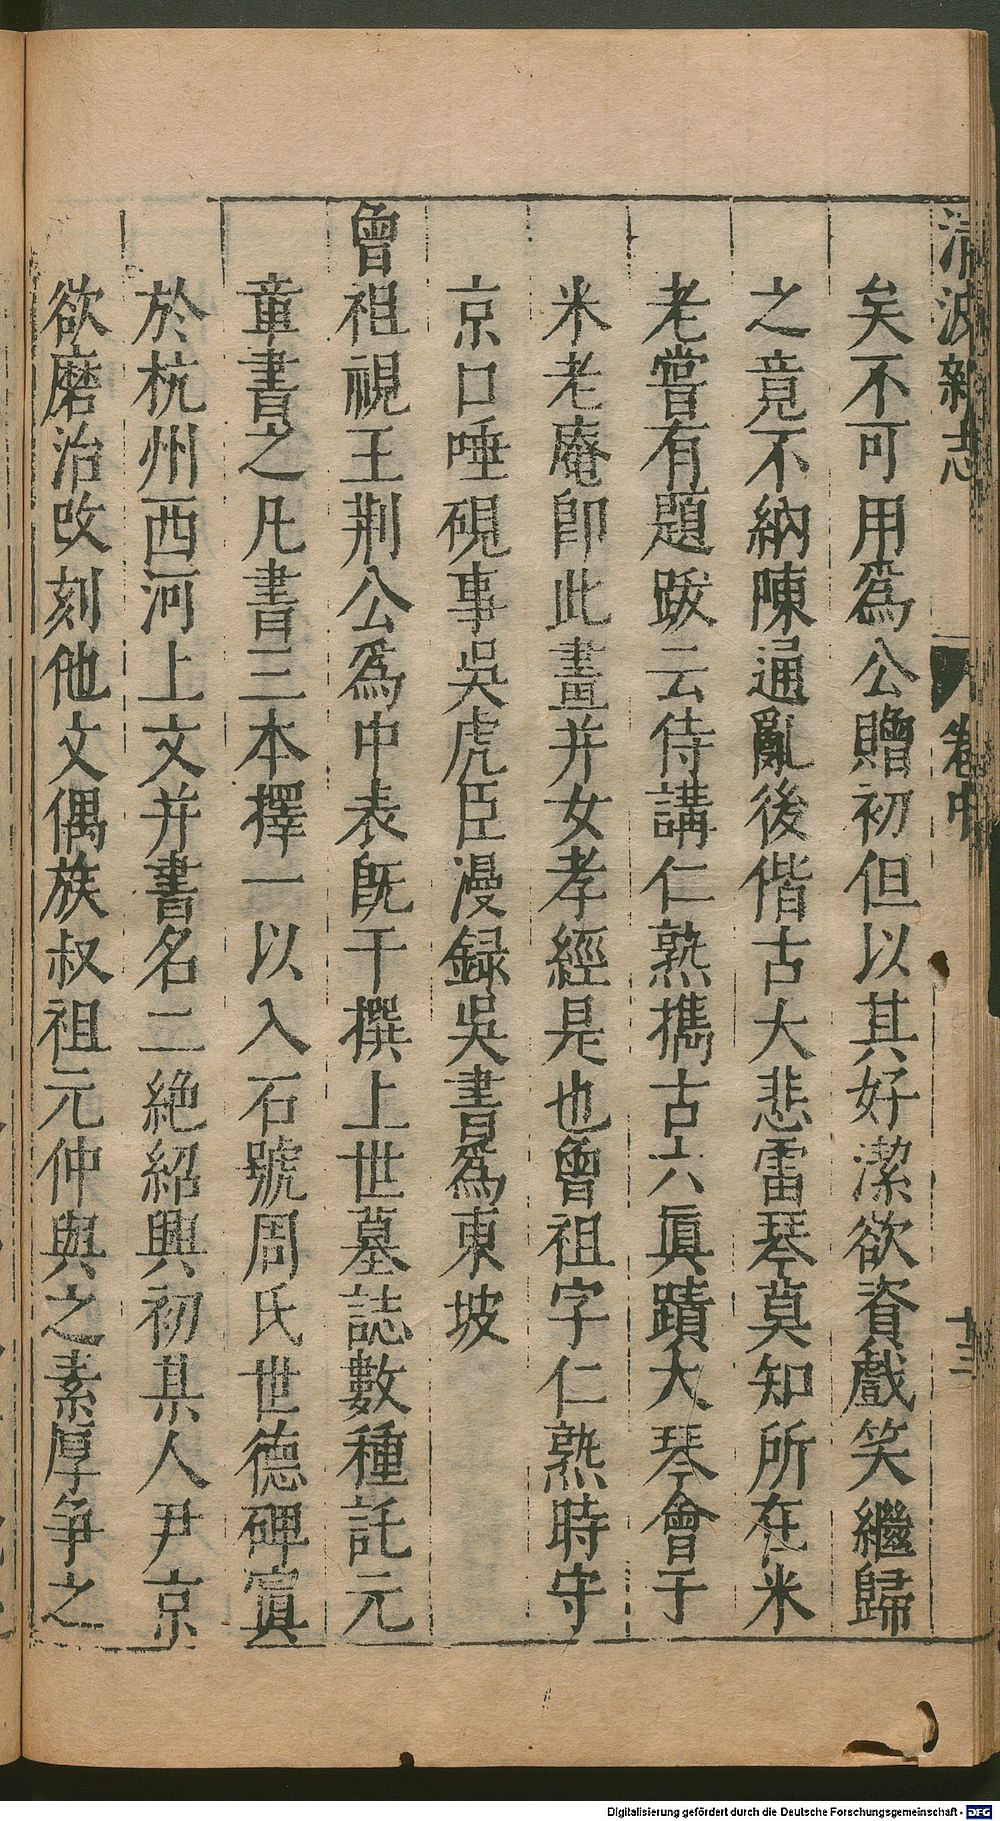 清波雜志
卷中
十三
矣不可用爲公贈初但以其好潔欲資戲笑繼歸
之竟不納陳通亂後偕古大悲雷琴莫知所在米
老嘗有題跋云侍講仁熟攜古六眞蹟大琴會于
米老庵卽此畫并女孝經是也曾祖字仁熟時守
京口唾硯事吳虎臣漫録吳書爲東坡
曾祖視王荆公爲中表旣干撰上世墓誌數種託元
章書之凡書三本擇一以入石號周氏世德碑寘
於杭州西河上文并書名二絶紹興初某人尹京
欲磨治改刻他文偶族叔祖元仲與之素厚争之
Digitalisierung gefördert durch die Deutsche Forschungsgemeinschaft - DFG